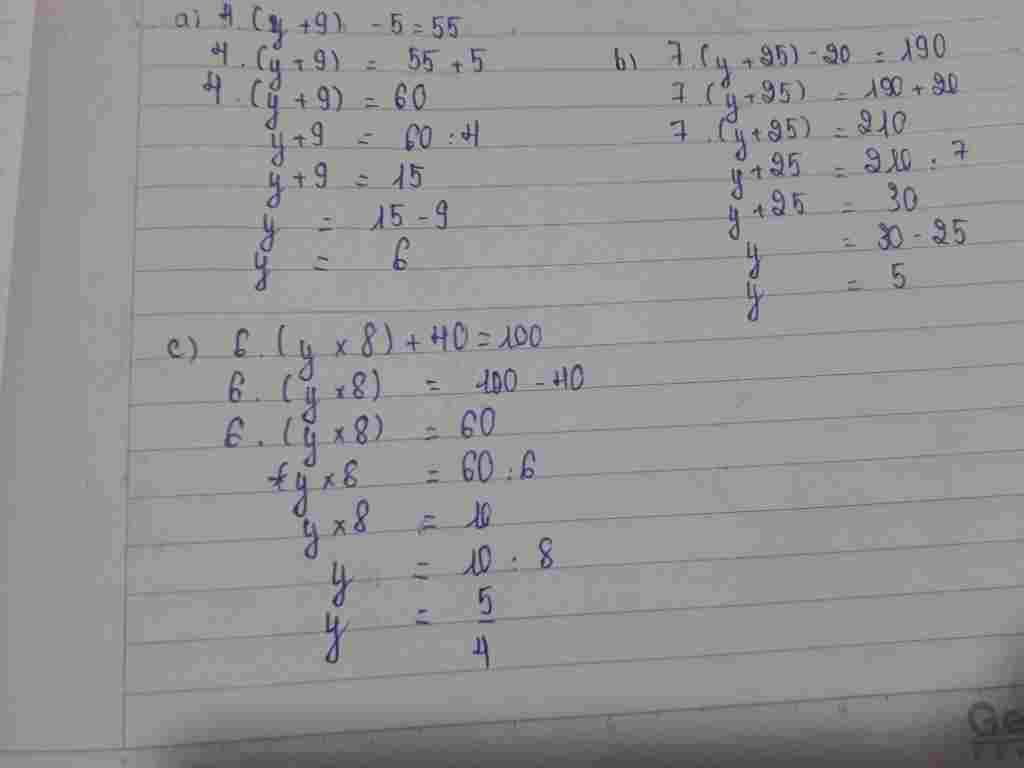 a) 4.(y+9) -5=55
4.(y+9) = 55+5
4.(y+9) = 60
y+9 = 60:4
y+9 = 15
y = 15-9
y = 6
b) 7.(y+25)-20 = 190
7.(y+25) = 190+20
7.(y+25) = 210
y+25 = 210:7
y+25 = 30
y = 30-25
y = 5
c) 6.(y×8)+40=100
6.(y×8) = 100-40
6.(y×8) = 60
y×8 = 60:6
y×8 = 10
y = 10:8
y = 5/4